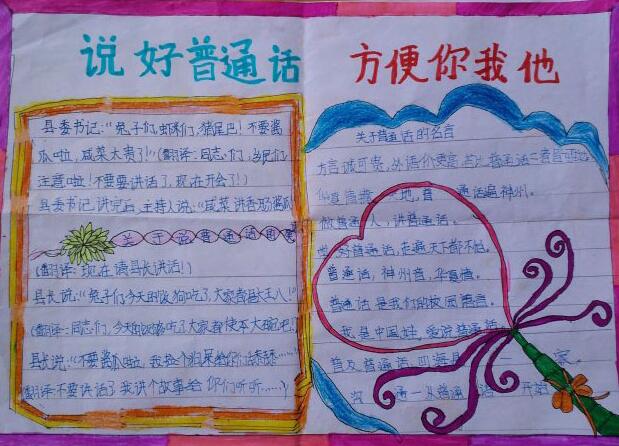 说好普通话 方便你我他
县委书记:“兔子们,虾米们,猪尾巴!不要酱
瓜啦,咸菜太贵了!”(翻译:同志们,乡民们
注意啦!不要讲话了,现在开会了!)
县委书记讲完后,主持人说:“咸菜讲香肠酱瓜
关于说普通话
(翻译:现在请县长讲话!)
县长说:“兔子们,今天的饭狗吃了,大家都是大王八!”
(翻译:同志们,今天的饭够吃了大家都使大碗吧!)
县长说:“不要酱瓜啦,我捡个狗屎给你们舔舔……”
(翻译:不要讲话了我讲个故事给你们听听……)
关于普通话的名言
方言诚可贵,外语价更高,
普 通话遍神州。
做普 人,讲普通话。
好普通话,走遍天下都不怕。
普通话,神州音,华夏情。
普通话是我们的校园语言。
我是中国娃,爱说普通话
普及普通话,四海 一家。
通——从普通话 开始